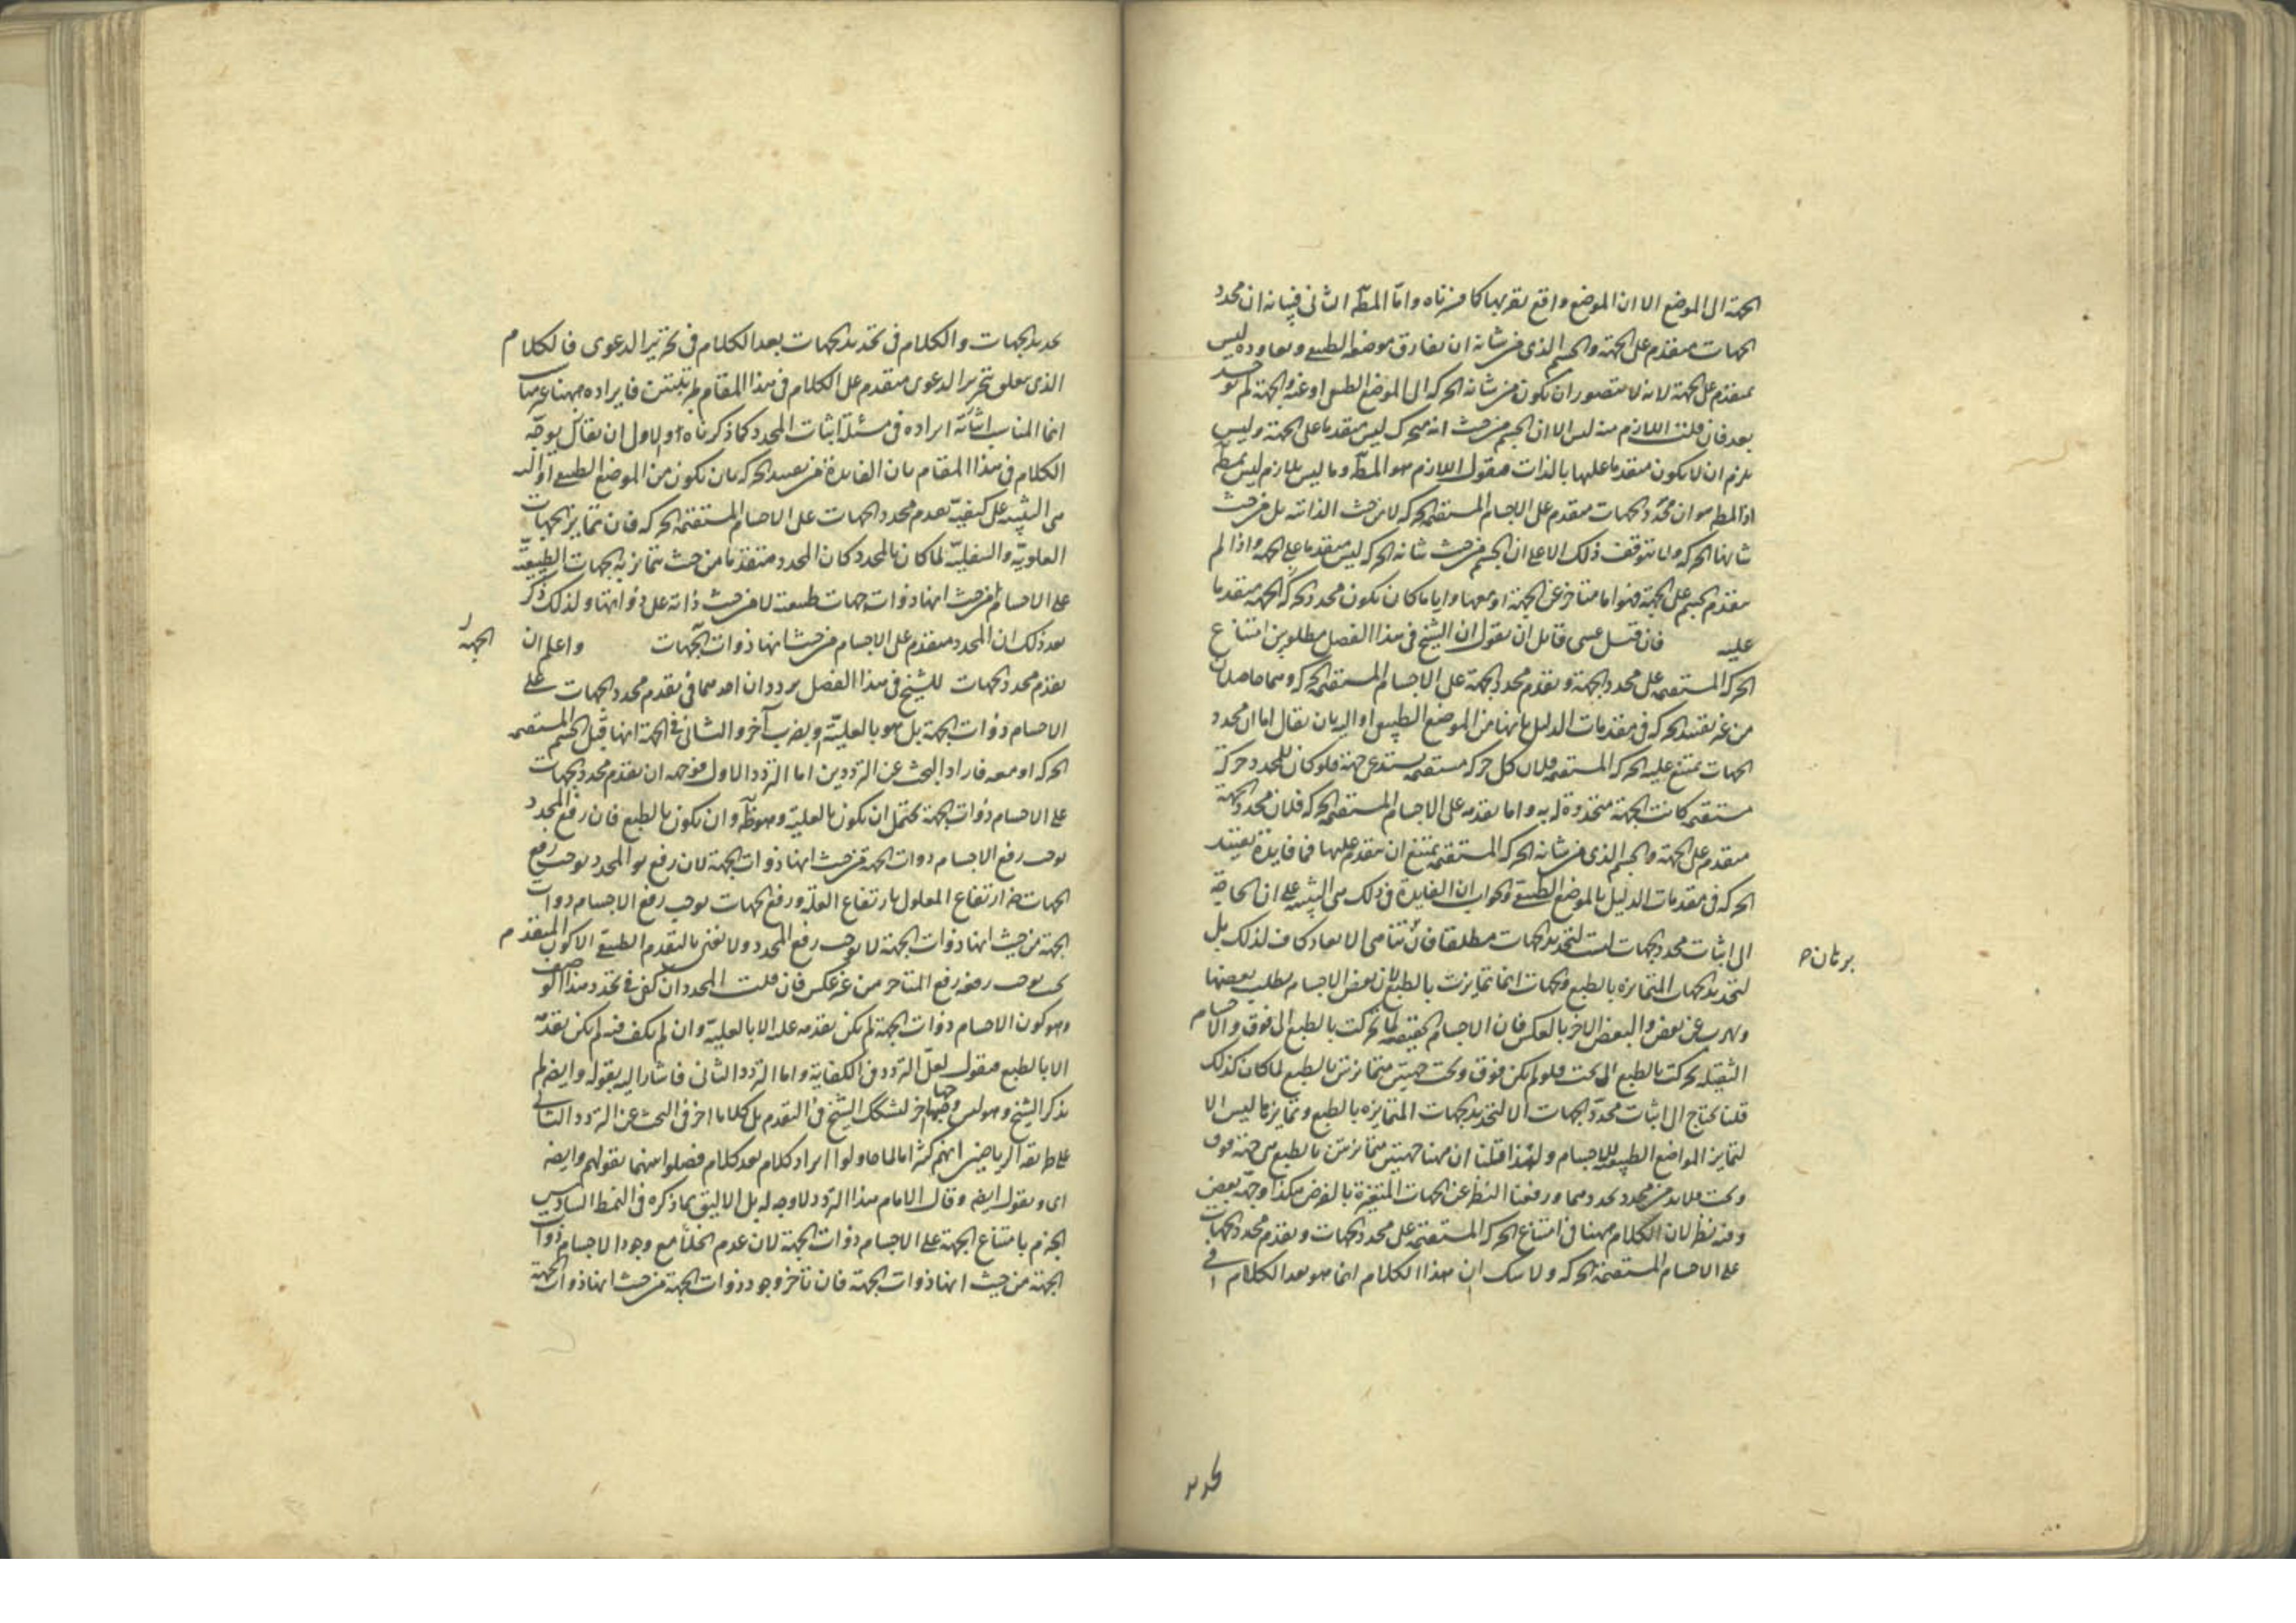 الجهة الى الموضع الا ان الموضع واقع بقربها كما قررناه واما المط الثانى فبيانه ان محدد
الجهات متقدم على الجهة والجسم الذى من شانه ان يفارق موضعه الطبيعى ويعاوده ليس
بمتقدم على الجهة لانه لا يتصور ان يكون من شانه الحركة الى الموضع الطبيعى او عنه والجهة لم توجد
بعد فان قلت اللازم منه ليس الا ان الجسم من حيث انه متحرك ليس متقدما على الجهة وليس
يلزم ان لا يكون متقدما عليها بالذات فنقول اللازم هو المط وما ليس بلازم ليس بمط
اذ المط هو ان محدد الجهات متقدم على الاجسام المستقيمة الحركة لا من حيث الذات بل من حيث
شانها الحركة ولا يتوقف ذلك الا على ان الجسم من حيث شانه الحركة ليس متقدما على الجهة واذا لم
يتقدم الجسم على الجهة فهو اما متاخر عن الجهة او معها وايا ما كان يكون محدد الجهة متقدما
عليه فان قيل عسى قائل ان يقول ان الشيخ فى هذا الفصل مطلوبين امتناع
الحركة المستقيمة على محدد الجهة وتقدم محدد الجهة على الاجسام المستقيمة الحركة وهما حاصلان
من غير تقييد الحركة فى مقدمات الدليل بانها من الموضع الطبيعى او اليه بان يقال اما ان محدد
الجهات يمتنع عليه الحركة المستقيمة فلان كل حركة مستقيمة يستدعى جهة فلو كان للمحدد حركة
مستقيمة كانت الجهة متحددة له به واما تقدمه على الاجسام المستقيمة الحركة فلان محدد الجهة
متقدم على الجهة والجسم الذى من شانه الحركة المستقيمة يمتنع ان يتقدم عليها فما فايدة تقييد
الحركة فى مقدمات الدليل بالموضع الطبيعى والجواب ان الفايدة فى ذلك هى التنبيه على ان الحاجة
الى اثبات محدد الجهات ليست لتحديد الجهات مطلقا فان تناهى الابعاد كاف لذلك بل
برهان ح
لتحديد الجهات المتمايزة بالطبع والجهات انما تمايزت بالطبع لان بعض الاجسام يطلب بعضها
ويهرب عن بعض والبعض الاخر بالعكس فان الاجسام الخفيفة لما تحركت بالطبع الى فوق والاجسام
الثقيلة تحركت بالطبع الى تحت فلو لم يكن فوق وتحت جهتين متمايزتين بالطبع لما كان كذلك
قلنا نحتاج الى اثبات محدد الجهات الا لتحديد الجهات المتمايزة بالطبع وتمايزها ليس الا
لتمايز المواضع الطبيعية للاجسام ولهذا قلنا ان ههنا جهتين متمايزتين بالطبع هى جهة فوق
وتحت فلا بد من محدد يحددهما ورفعنا النظر عن الجهات المتغيرة بالفرض هكذا وجهه بعض
وفيه نظر لان الكلام ههنا فى امتناع الحركة المستقيمة على محدد الجهات وتقدم محدد الجهات
على الاجسام المستقيمة الحركة ولا شك ان هذا الكلام انما هو بعد الكلام فى
تحديد
تحديد الجهات والكلام فى تحديد الجهات بعد الكلام فى تحرير الدعوى فالكلام
الذى يتعلق بتحرير الدعوى متقدم على الكلام فى هذا المقام بمرتبتين فايراده ههنا غير مناسب
انما المناسب ايراده فى مسئلة اثبات المحدد كما ذكرناه والاولى ان يقال يوجه
الكلام فى هذا المقام بان الفايدة من تقييد الحركة بان يكون من الموضع الطبيعى او اليه
هى التنبيه على كيفية تقدم محدد الجهات على الاجسام المستقيمة الحركة فان تمايز الجهات
العلوية والسفلية لما كان بالمحدد كان المحدد متقدما من حيث يتمايز به الجهات الطبيعية
على الاجسام من حيث انها ذوات جهات طبيعية لا من حيث ذاته على ذواتها ولذلك ذكر
بعد ذلك ان المحدد متقدم على الاجسام من حيث انها ذوات الجهات واعلم ان
الجهة
تقدم محدد الجهات للشيخ فى هذا الفصل ترددان احدهما فى تقدم محدد الجهات على
الاجسام ذوات الجهة بل هو بالعلية او بضرب آخر والثانى فى الجهة انها قبل الجسم المستقيم
الحركة او معه فاراد البحث عن الترددين اما التردد الاول فوجهه ان تقدم محدد الجهات
على الاجسام ذوات الجهة يحتمل ان يكون بالعلية وهو ظ وان يكون بالطبع فان رفع المحدد
يوجب رفع الاجسام ذوات الجهة من حيث انها ذوات الجهة لان رفع المحدد يوجب رفع
الجهات ضرورة ارتفاع المعلول بارتفاع العلة ورفع الجهات يوجب رفع الاجسام ذوات
الجهة من حيث انها ذوات الجهة لا يوجب رفع المحدد ولا نعنى بالتقدم الطبيعى الا كون المتقدم
بحيث يوجب رفعه رفع المتاخر من غير عكس فان قلت المحدد ان كفى فى تحدد هذا الوصف
وهو كون الاجسام ذوات الجهة لم يكن تقدمه عليه الا بالعلية وان لم يكف فيه لم يكن تقدمه
الا بالطبع فنقول لعل التردد فى الكفاية واما التردد الثانى فاشار اليه بقوله وايضا لم
يذكر الشيخ وهو ليس وجها آخر لتشكك الشيخ فى التقدم بل كلاما اخر فى البحث عن التردد الثانى
على طريقة الرياضيين انهم كثيرا ما لما حاولوا ايراد كلام بعد كلام فصلوا بينهما بقولهم وايضا
اى ونقول ايضا وقال الامام هذا التردد لا وجه له بل الاليق بما ذكره فى النمط السادس
الجزم بامتناع الجهة على الاجسام ذوات الجهة لان عدم الخلأ مع وجود الاجسام ذوات
الجهة من حيث انها ذوات الجهة فان تأخر وجود ذوات الجهة من حيث انها ذوات الجهة